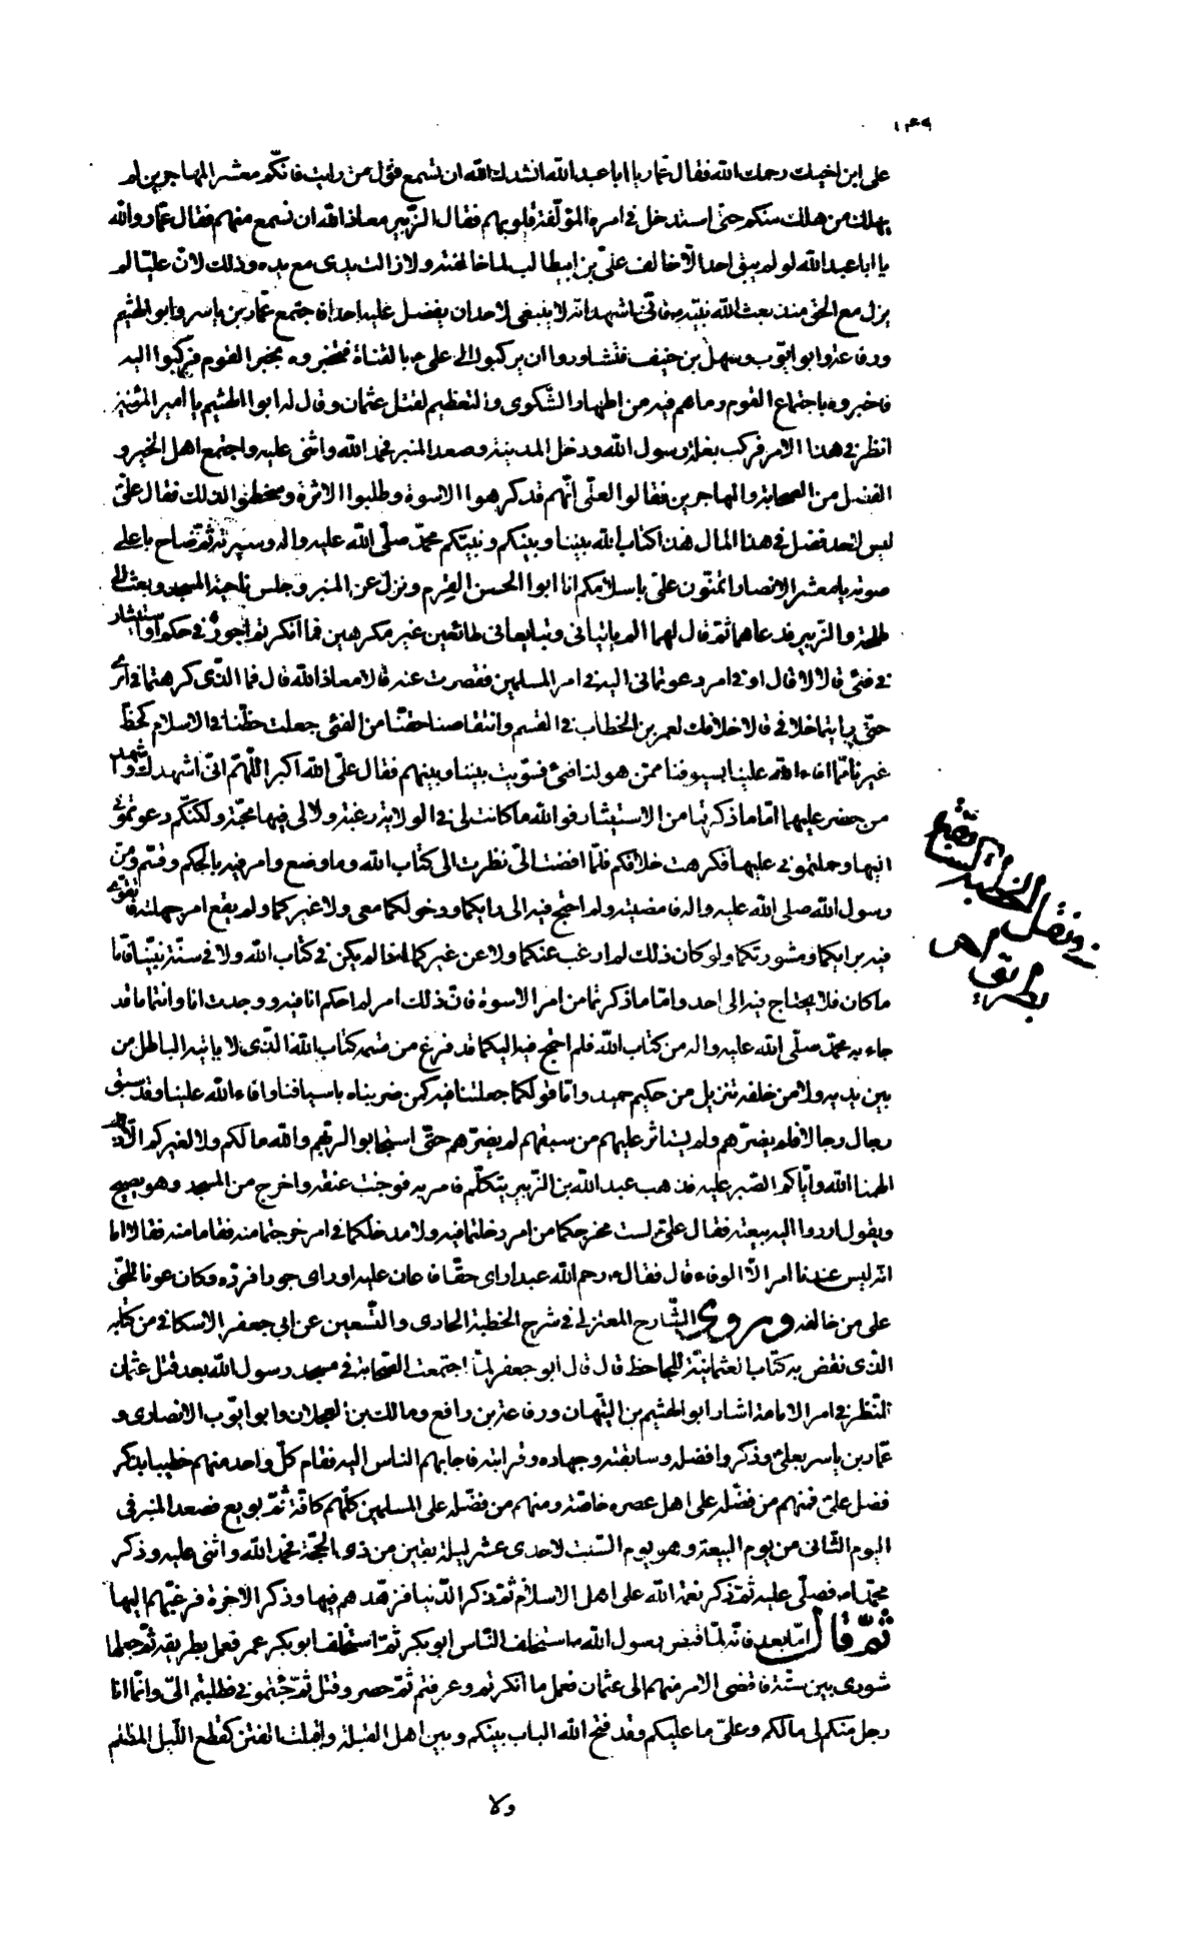 على ابن اخيك رحمك الله فقال عمار يا ابا عبد الله انشدك الله ان تسمع قول من رايت فانكم معشر المهاجرين لم
يهلك من هلك منكم حتى استدخل فى امره المؤلفة قلوبهم فقال الزبير معاذ الله ان نسمع منهم فقال عمار والله
يا ابا عبد الله لو لم يبق احد الا خالف على بن ابيطالب لما خالفته ولا زالت يدى مع يده وذلك لان عليا لم
يزل مع الحق منذ بعث الله نبيه ص فانى اشهد انه لا ينبغى لاحد ان يفضل عليه احدا فاجتمع عمار بن ياسر وابو الهثيم
ورفاعة وابو ايوب وسهل بن حنيف فتشاوروا ان يركبوا الى على ع بالقناة فيخبروه بخبر القوم فركبوا اليه
فاخبروه باجتماع القوم وما هم فيه من اظهار الشكوى والتعظيم لقتل عثمان وقال له ابو الهثيم يا امير المؤمنين
انظر فى هذا الامر فركب بغلة رسول الله ودخل المدينة وصعد المنبر فحمد الله واثنى عليه واجتمع اهل الخير و
الفضل من الصحابة والمهاجرين فقالوا لعلى انهم قد كرهوا الاسوة وطلبوا الاثرة وسخطوا لذلك فقال على
ليس لاحد فضل فى هذا المال هذا كتاب الله بيننا وبينكم ونبيكم محمد صلى الله عليه واله وسيرته ثم صاح باعلى
صوته يا معشر الانصار اتمنون على باسلامكم انا ابو الحسن القرم ونزل عن المنبر وجلس ناحية المسجد وبعث الى
طلحة والزبير فدعاهما ثم قال لهما الم ياتيانى وتبايعانى طائعين غير مكرهين فما انكرتم اجور فى حكم او استيثار
فى فئى قالا لا قال او فى امر دعوتمانى اليه فى امر المسلمين فقصرت عنه قالا معاذ الله قال فما الذى كرهتما فى امرى
حتى رايتما خلافى قالا خلافك لعمر بن الخطاب فى القسم وانتقاصنا حقنا من الفئى جعلت حظنا فى الاسلام كحظ
غيرنا مما افاء الله علينا بسيوفنا ممن هو لنا فئ فسويت بيننا وبينهم فقال على الله اكبر اللهم انى اشهدك واشهد
من حضر عليهما اما ما ذكرتما من الاستيثار فوالله ما كانت لى فى الولاية رغبة ولا لى فيها محبة ولكنكم دعوتمونى
اليها وحملتمونى عليها فكرهت خلافكم فلما افضت الى نظرت الى كتاب الله وما وضع وامر فيه بالحكم وقسم وسن
رسول الله صلى الله عليه واله فامضيته ولم احتج فيه الى رايكما ودخولكما معى ولا غيركما ولم يقع امر جهلته فاتقوى
فيه برايكما ومشورتكما ولو كان ذلك لم ارغب عنكما ولا عن غيركما اذا لم يكن فى كتاب الله ولا فى سنة نبينا فاما
ما كان فلا يحتاج فيه الى احد واما ما ذكرتما من امر الاسوة فان ذلك امر لم احكم انا فيه ووجدت انا وانتما ما قد
جاء به محمد صلى الله عليه واله من كتاب الله فلم احتج فيه اليكما قد فرغ من قسمه كتاب الله الذى لا ياتيه الباطل من
بين يديه ولا من خلفه تنزيل من حكيم حميد واما قولكما جعلتنا فيه كمن ضربناه باسيافنا وافاء الله علينا وقد سبق
رجال رجالا فلم يضرهم ولم يستاثر عليهم من سبقهم لم يضرهم حتى استجابوا لربهم والله ما لكم ولا لغيركم الا ذلك
الهمنا الله واياكم الصبر عليه فذهب عبد الله بن الزبير يتكلم فامر به فوجئت عنقه واخرج من المسجد وهو يصيح
ويقول اردد اليه بيعته فقال على لست مخرجكما من امر دخلتما فيه ولا مدخلكما فى امر خرجتما منه فقاما منه فقالا اما
انه ليس عندنا امر الا الوفاء قال فقال ع رحم الله عبدا راى حقا فاعان عليه او راى جورا فرده وكان عونا للحق
على من خالفه وروى الشارح المعتزلى فى شرح الخطبة الحادى والتسعين عن ابى جعفر الاسكافى من كتابه
الذى نقض به كتاب العثمانية للجاحظ قال قال ابو جعفر لما اجتمعت الصحابة فى مسجد رسول الله بعد قتل عثمان
للنظر فى امر الامامة اشار ابو الهثيم بن التيهان ورفاعة بن رافع ومالك بن العجلان وابو ايوب الانصارى و
عمار بن ياسر بعلى ع وذكروا فضله وسابقته وجهاده وقرابته فاجابهم الناس اليه فقام كل واحد منهم خطيبا يذكر
فضل على فمنهم من فضله على اهل عصره خاصة ومنهم من فضله على المسلمين كلهم كافة ثم بويع فصعد المنبر فى
اليوم الثانى من يوم البيعة وهو يوم السبت لاحدى عشر ليلة بقين من ذى الحجة فحمد الله واثنى عليه وذكر
محمدا ص فصلى عليه ثم ذكر نعمة الله على اهل الاسلام ثم ذكر الدنيا فزهدهم فيها وذكر الاخرة فرغبهم اليها
ثم قال اما بعد فانه لما قبض رسول الله ص استخلف الناس ابو بكر ثم استخلف ابو بكر عمر فعمل بطريقه ثم جعلها
شورى بين ستة فافضى الامر منهم الى عثمان فعمل ما انكرتم وعرفتم ثم حصر وقتل ثم جئتمونى فطلبتم الى وانما انا
رجل منكم لى ما لكم وعلى ما عليكم وقد فتح الله الباب بينكم وبين اهل القبلة واقبلت الفتن كقطع الليل المظلم
ولا
فى نقل
الخطبة
بطريق